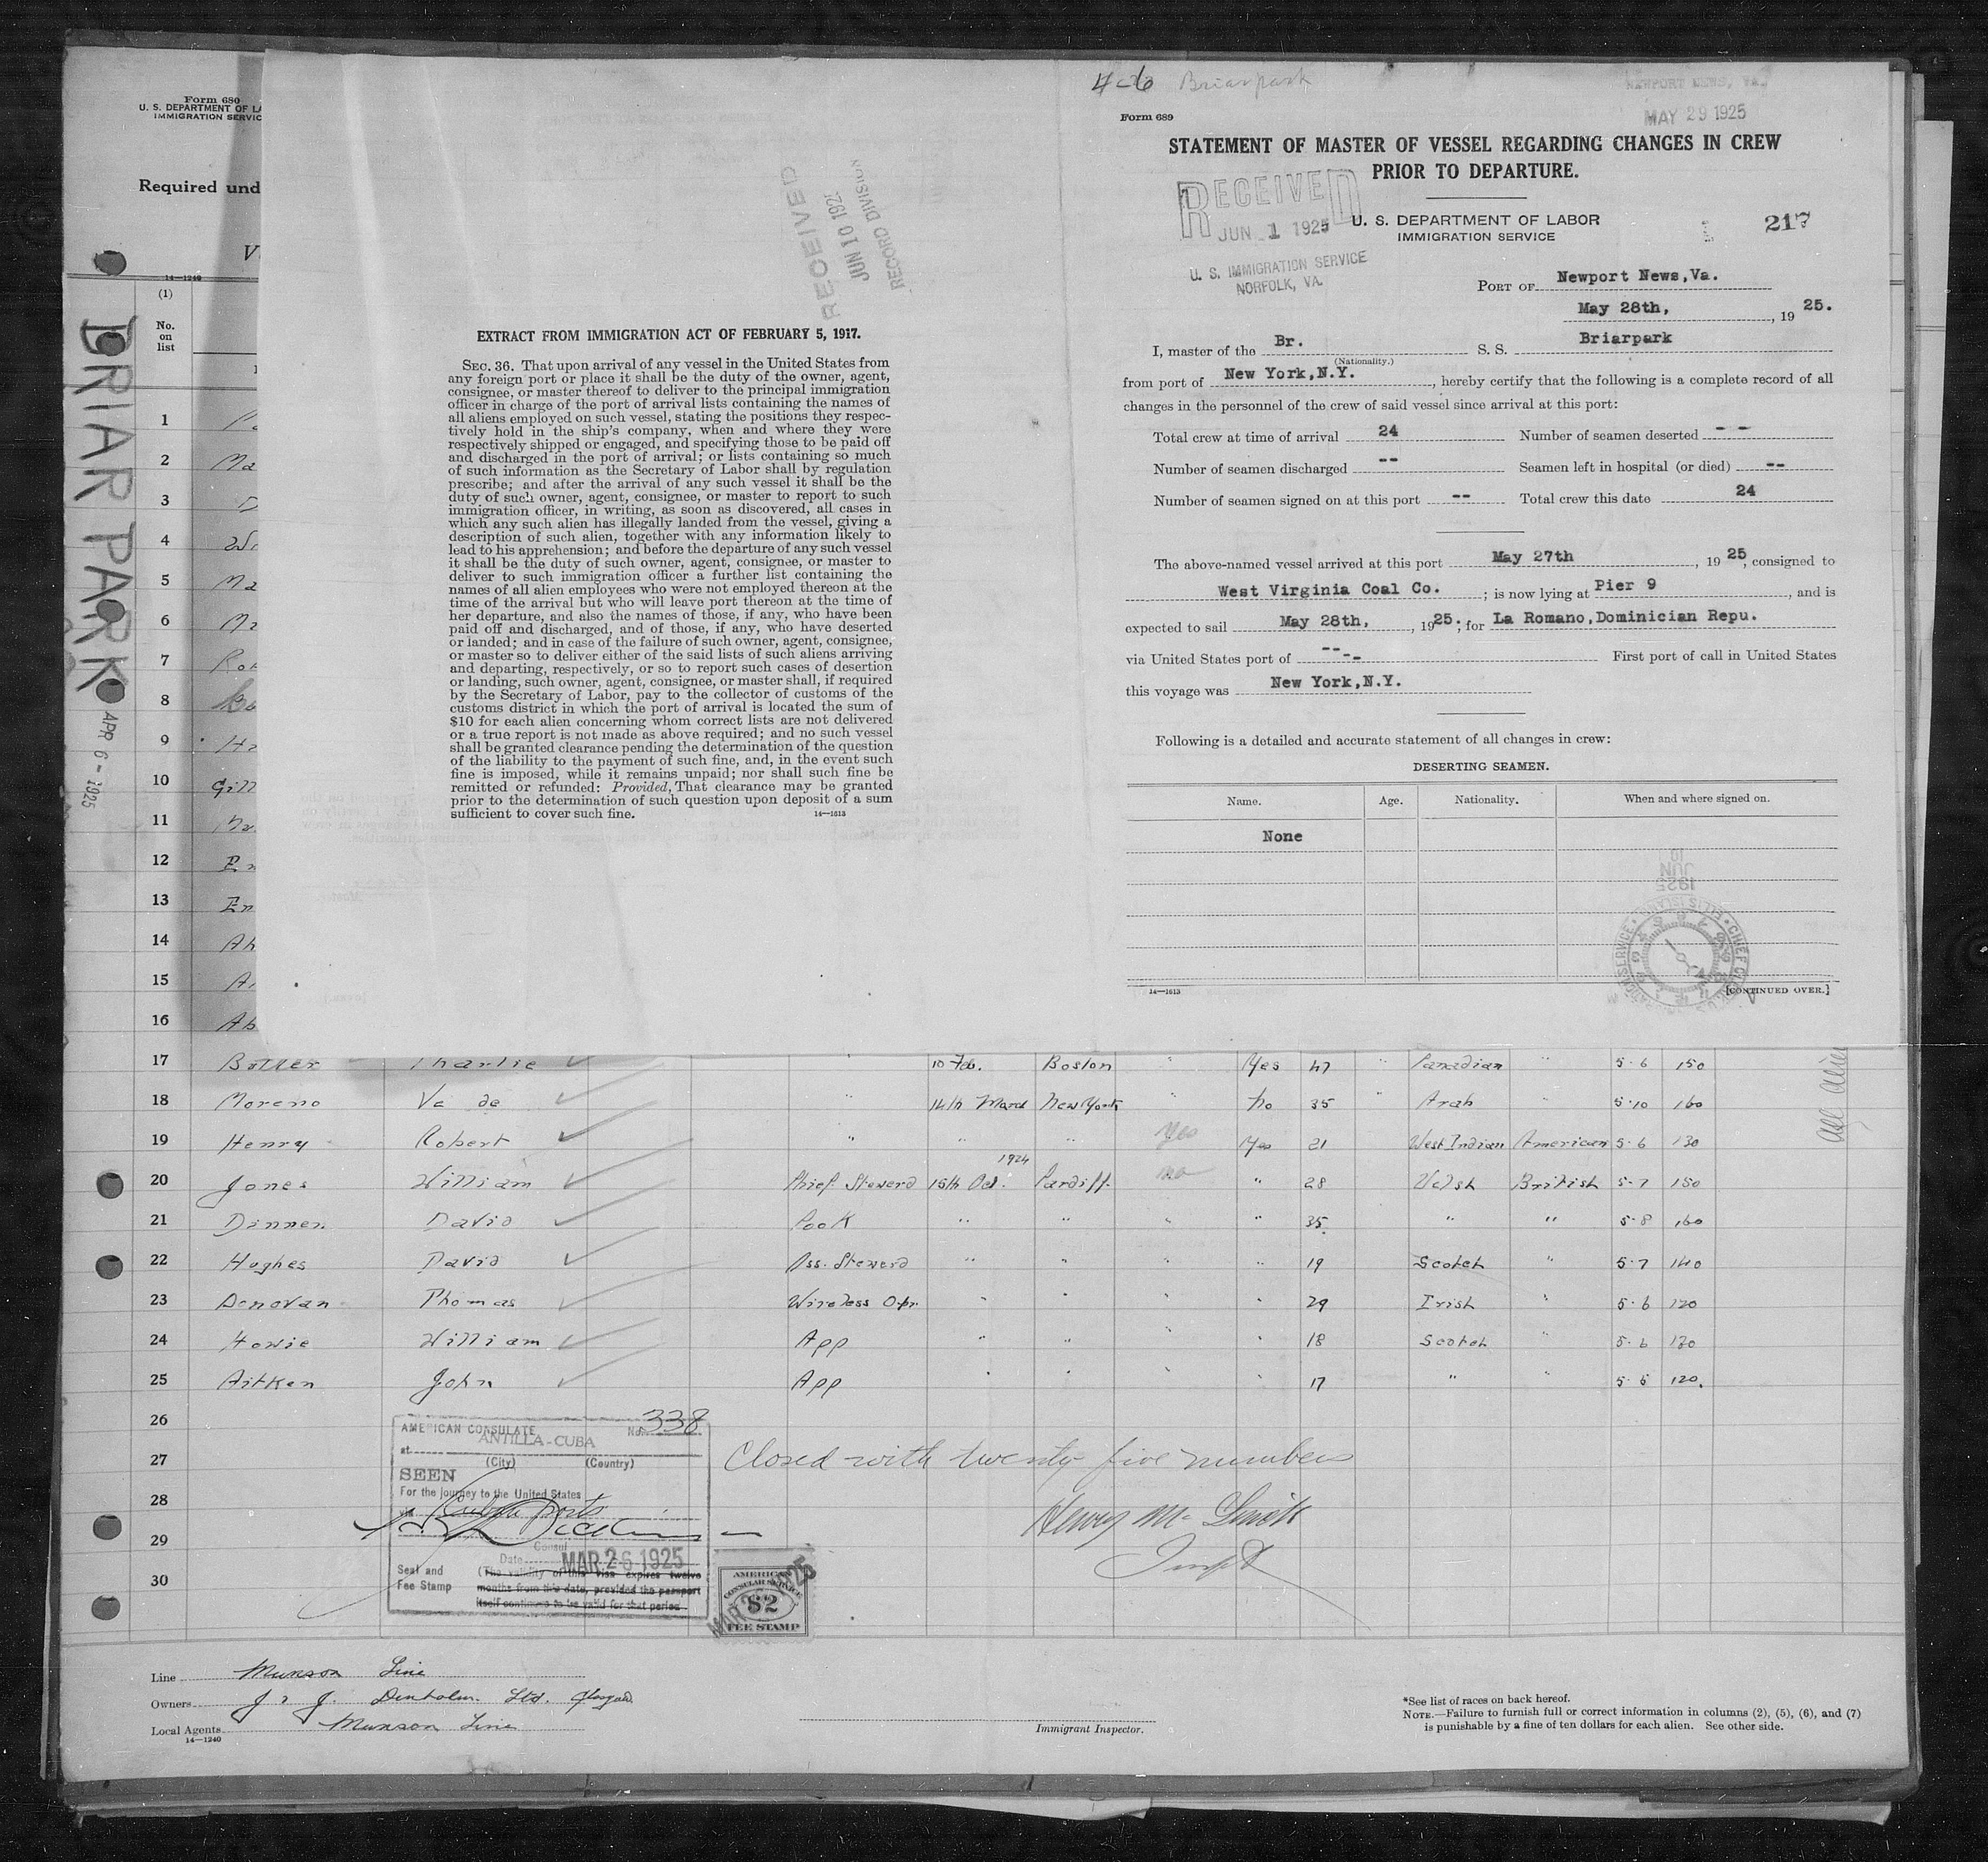 Form 680
U. S. DEPARTMENT OF LA
IMMIGRATION SERVIC
Required und
V
14—1240
(1)
No.
on
list
BRIARPARK
APR 6 - 1925
1
2 Ma
3 D
4 Wi
5 Ma
6
7
8
9
10 Gill
11
12
13
14
15
16
RECEIVED
JUN 10 192
RECORD DIVISION
EXTRACT FROM IMMIGRATION ACT OF FEBRUARY 5, 1917.
SEC. 36. That upon arrival of any vessel in the United States from
any foreign port or place it shall be the duty of the owner, agent,
consignee, or master thereof to deliver to the principal immigration
officer in charge of the port of arrival lists containing the names of
all aliens employed on such vessel, stating the positions they respec-
tively hold in the ship's company, when and where they were
respectively shipped or engaged, and specifying those to be paid off
and discharged in the port of arrival; or lists containing so much
of such information as the Secretary of Labor shall by regulation
prescribe; and after the arrival of any such vessel it shall be the
duty of such owner, agent, consignee, or master to report to such
immigration officer, in writing, as soon as discovered, all cases in
which any such alien has illegally landed from the vessel, giving a
description of such alien, together with any information likely to
lead to his apprehension; and before the departure of any such vessel
it shall be the duty of such owner, agent, consignee, or master to
deliver to such immigration officer a further list containing the
names of all alien employees who were not employed thereon at the
time of the arrival but who will leave port thereon at the time of
her departure, and also the names of those, if any, who have been
paid off and discharged, and of those, if any, who have deserted
or landed; and in case of the failure of such owner, agent, consignee,
or master so to deliver either of the said lists of such aliens arriving
and departing, respectively, or so to report such cases of desertion
or landing, such owner, agent, consignee, or master shall, if required
by the Secretary of Labor, pay to the collector of customs of the
customs district in which the port of arrival is located the sum of
$10 for each alien concerning whom correct lists are not delivered
or a true report is not made as above required; and no such vessel
shall be granted clearance pending the determination of the question
of the liability to the payment of such fine, and, in the event such
fine is imposed, while it remains unpaid; nor shall such fine be
remitted or refunded: Provided, That clearance may be granted
prior to the determination of such question upon deposit of a sum
sufficient to cover such fine.
14—1613
4-6 Briarpark
NEWPORT NEWS, VA.
MAY 29 1925
Form 689
STATEMENT OF MASTER OF VESSEL REGARDING CHANGES IN CREW
PRIOR TO DEPARTURE.
RECEIVED
JUN 1 1925
U. S. IMMIGRATION SERVICE
NORFOLK, VA.
U. S. DEPARTMENT OF LABOR
IMMIGRATION SERVICE
217
PORT OF Newport News,Va.
May 28th, , 19 25.
I, master of the Br. S. S. Briarpark
(Nationality.)
from port of New York,N.Y. , hereby certify that the following is a complete record of all
changes in the personnel of the crew of said vessel since arrival at this port:
Total crew at time of arrival 24 Number of seamen deserted - -
Number of seamen discharged -- Seamen left in hospital (or died) --
Number of seamen signed on at this port -- Total crew this date 24
The above-named vessel arrived at this port May 27th , 19 25, consigned to
West Virginia Coal Co. ; is now lying at Pier 9 , and is
expected to sail May 28th, , 1925; for La Romano,Dominician Repu.
via United States port of ---- First port of call in United States
this voyage was New York,N.Y.
Following is a detailed and accurate statement of all changes in crew:
DESERTING SEAMEN.
Name. Age. Nationality. When and where signed on.
None
JUN 10 1925
ELLIS ISLAND
14—1613
[CONTINUED OVER.]
17 Charlie 10 Feb. Boston " Yes 47 " Canadian " 5-6 150
18 Moreno 14th March New York " No 35 " Arab " 5-10 160
19 Henry Robert " " " Yes Yes 21 West Indian American 5-6 130
20 Jones William Chief Steward 15th Oct. 1924 Cardiff no " 28 Welsh British 5-7 150
21 Dinnen David Cook " " " " 35 " " 5-8 160
22 Hughes David Ass. Steward " " " " 19 Scotch " 5-7 140
23 Donovan Thomas Wireless Opr. " " " " 29 Irish " 5-6 120
24 Howie William App " " " " 18 Scotch " 5-6 130
25 Aitken John App " " " " 17 " " 5-5 120.
26
27
28
29
30
AMERICAN CONSULATE No. 338
at ANTILLA-CUBA
(City) (Country)
SEEN
For the journey to the United States
via Cuban ports
Consul
Date MAR 26 1925
Seal and
Fee Stamp
(The validity of this visa expires twelve
months from this date, provided the passport
itself continues to be valid for that period
AMERICAN
CONSULAR SERVICE
$2
FEE STAMP
Closed with twenty five numbers
Line Munson Line
Owners J & J. Denholm. Ltd. Glasgow
Local Agents Munson Line
14—1240
Immigrant Inspector.
*See list of races on back hereof.
NOTE.—Failure to furnish full or correct information in columns (2), (5), (6), and (7)
is punishable by a fine of ten dollars for each alien. See other side.